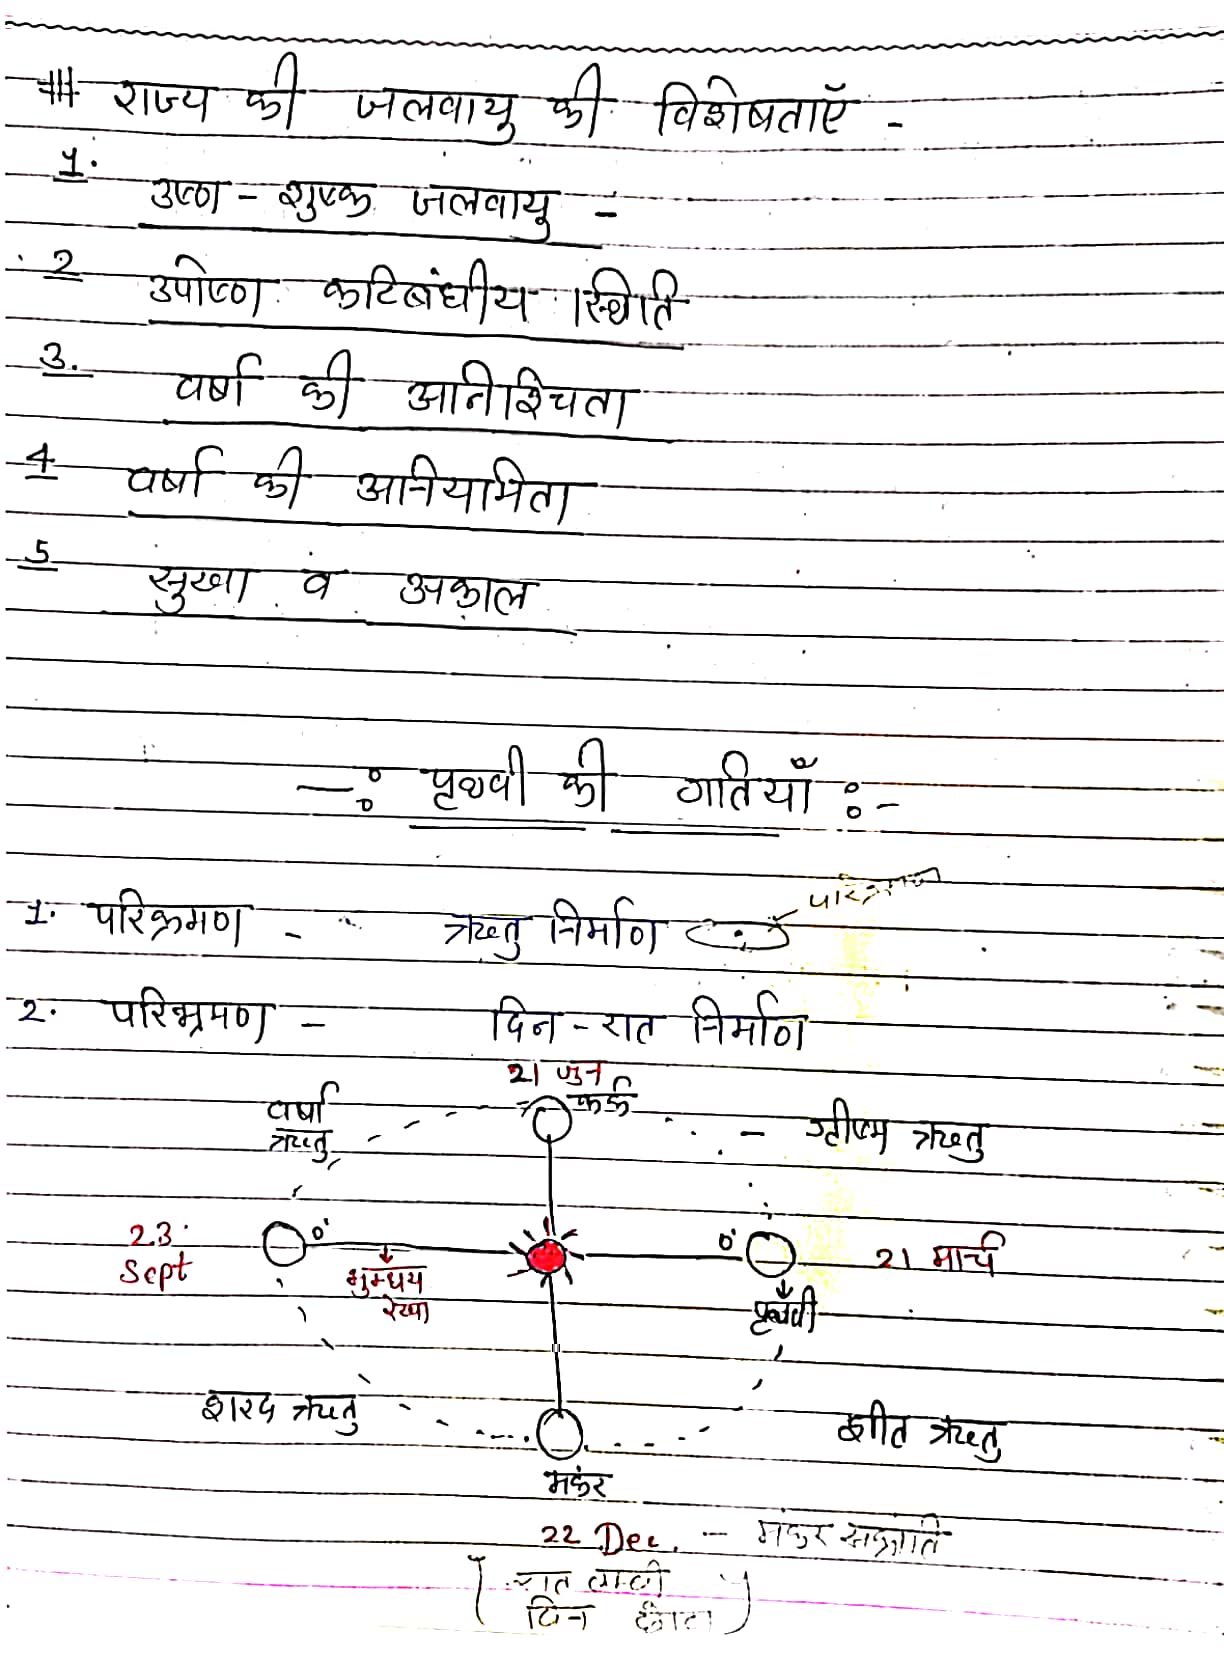 # राज्य की जलवायु की विशेषताएँ -
1. उष्ण - शुष्क जलवायु -
2 उपोष्ण कटिबंधीय स्थिति
3. वर्षा की अनिश्चिता
4 वर्षा की अनियामिता
5 सुखा व अकाल
-: पृथ्वी की गतियाँ :-
परिक्रमण
1. परिक्रमण - ऋतु निर्माण
2. परिभ्रमण - दिन - रात निर्माण
21 जुन
कर्क
वर्षा
ऋतु
ग्रीष्म ऋतु
23 Sept
0°
भुमध्य
रेखा
0°
21 मार्च
पृथ्वी
शरद ऋतु
शीत ऋतु
मकर
22 Dec. - मकर सक्रांति
रात लम्बी
दिन छोटा